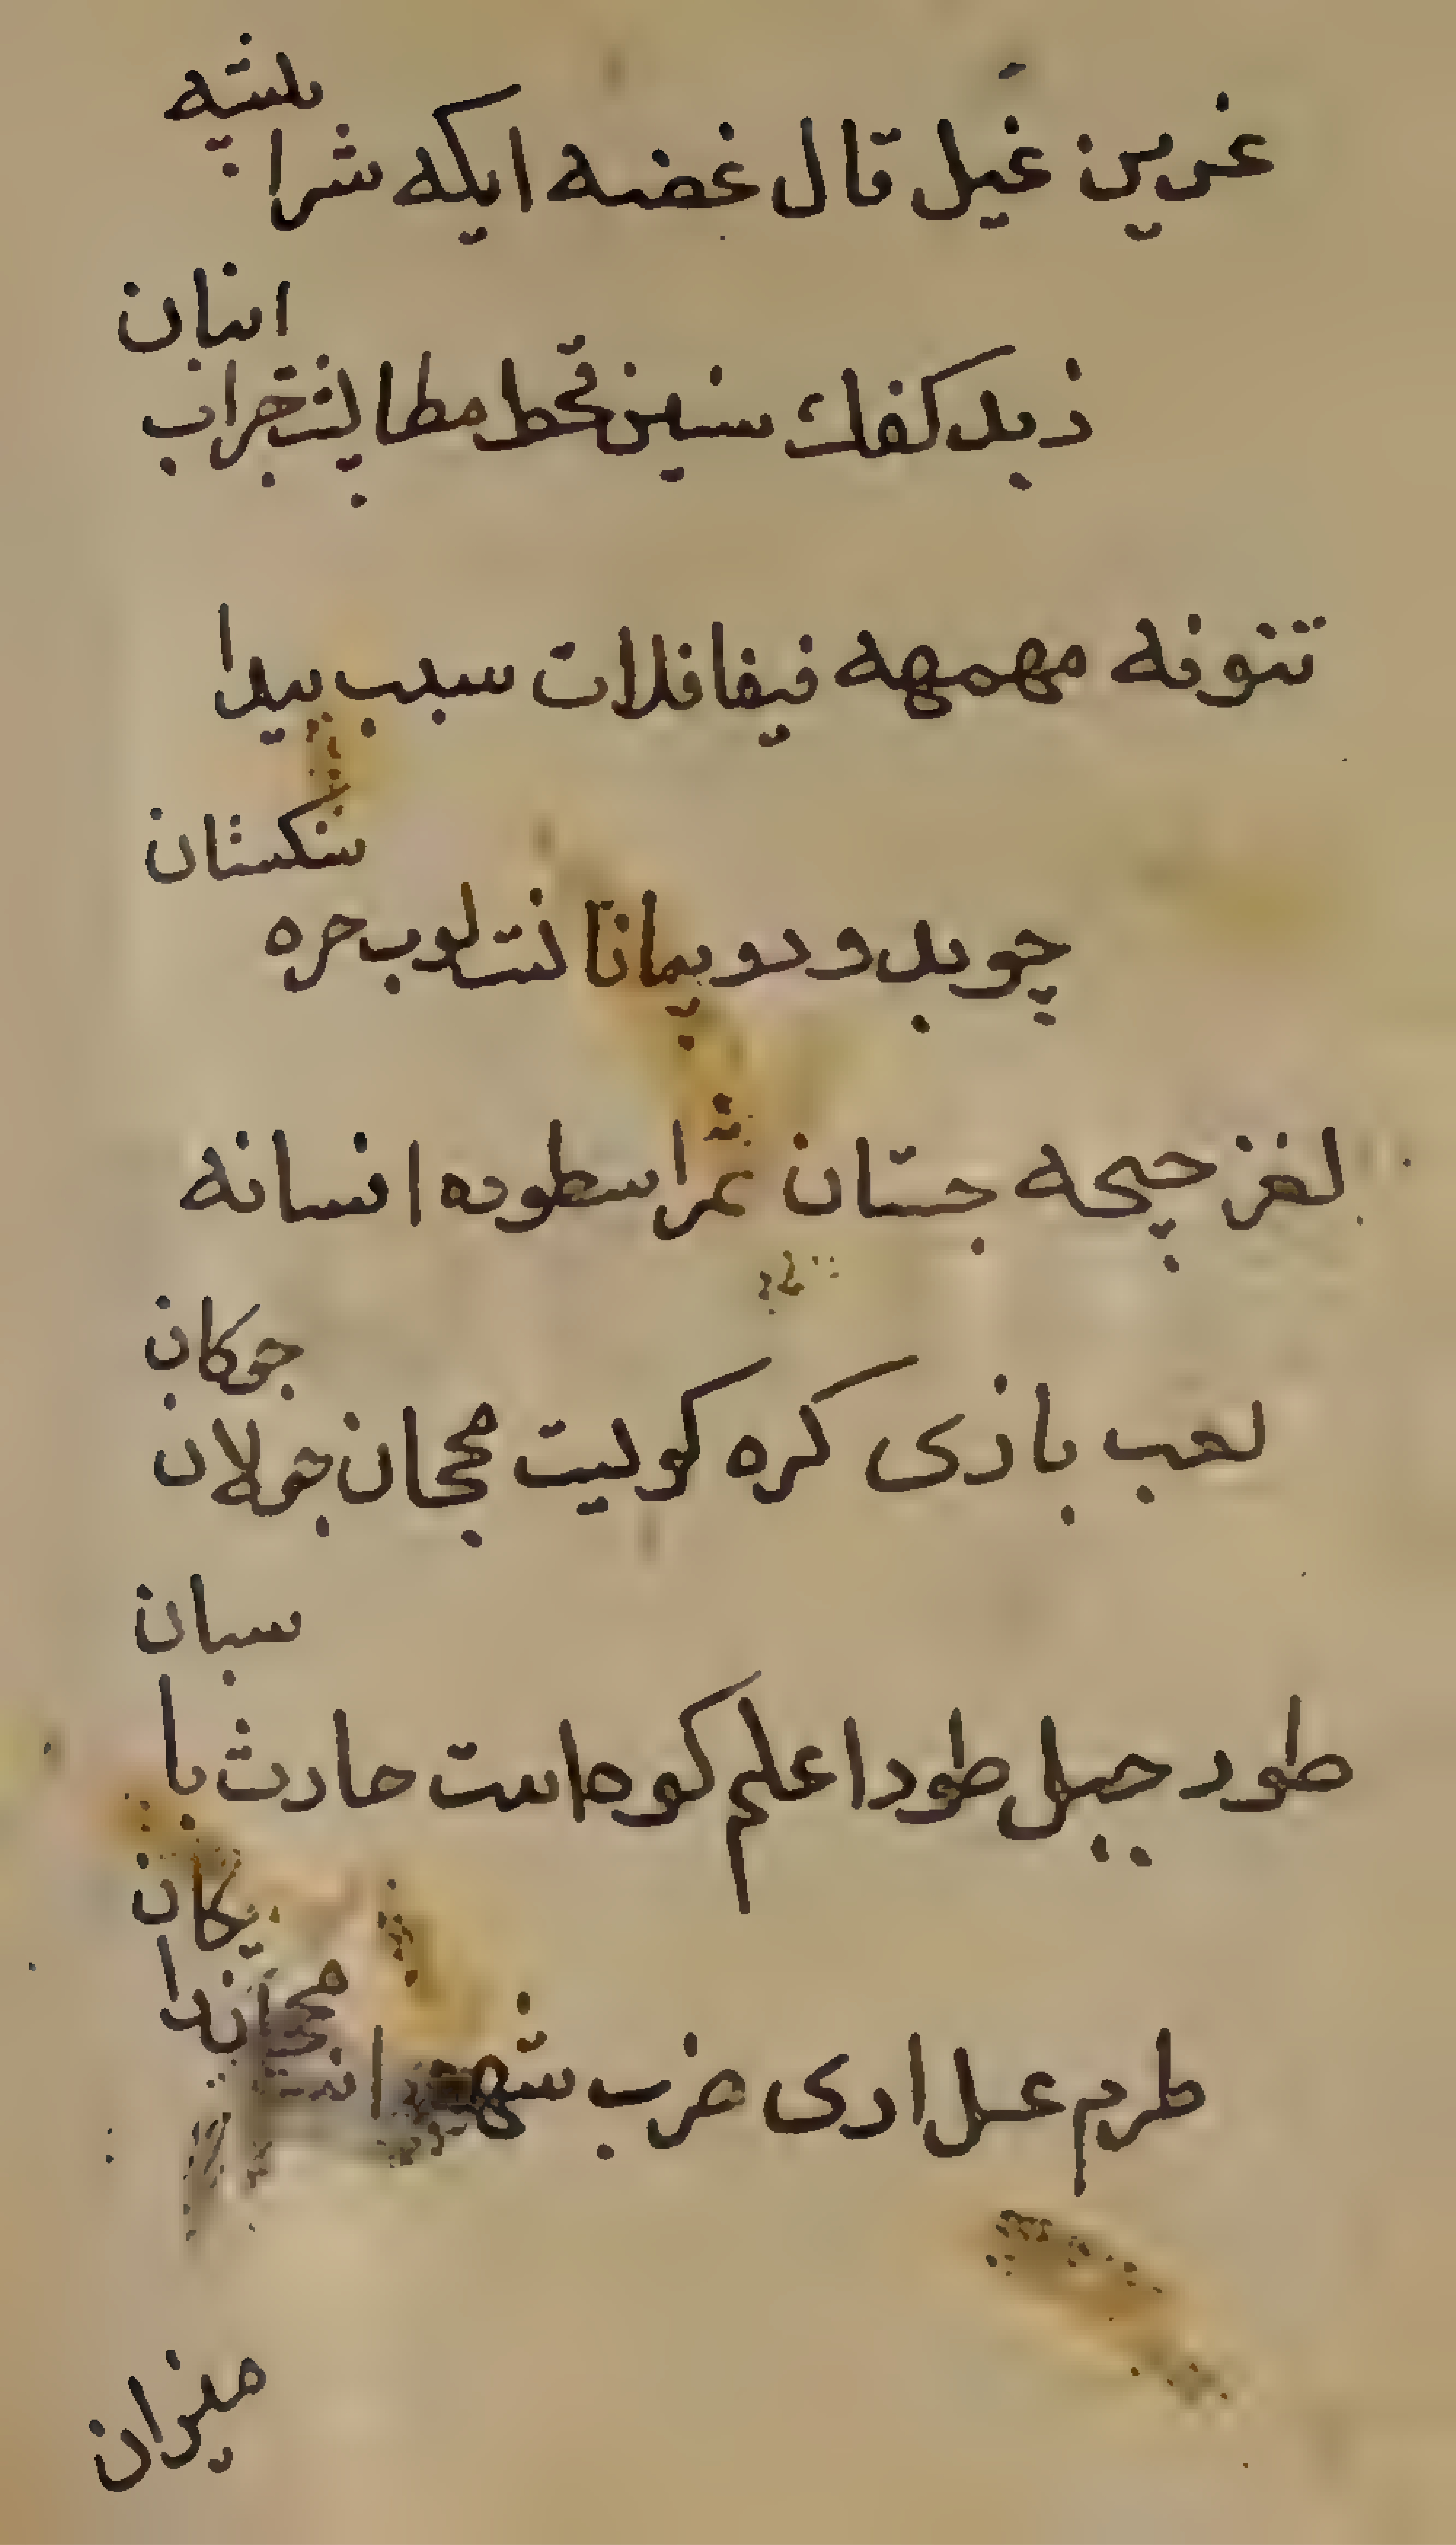 عرین غیل قال غضه ایکه شرا
بیشه
ذبد کفک سنین قحط مطا لیت جراب
انبان
تنوفه مهمهه فیفا فلات سبب بیدا
چوبد و دو بیمانا نت لوب حره
سنکستان
لغز چیحه جستان ثمر اسطوره افسانه
لعب بازی کره کو لیت محجان جولان
جوکان
طود جبل طود اعلم کوه است حادث با
سبان
طرم عسل اری ضرب شهد
یکان
میزان